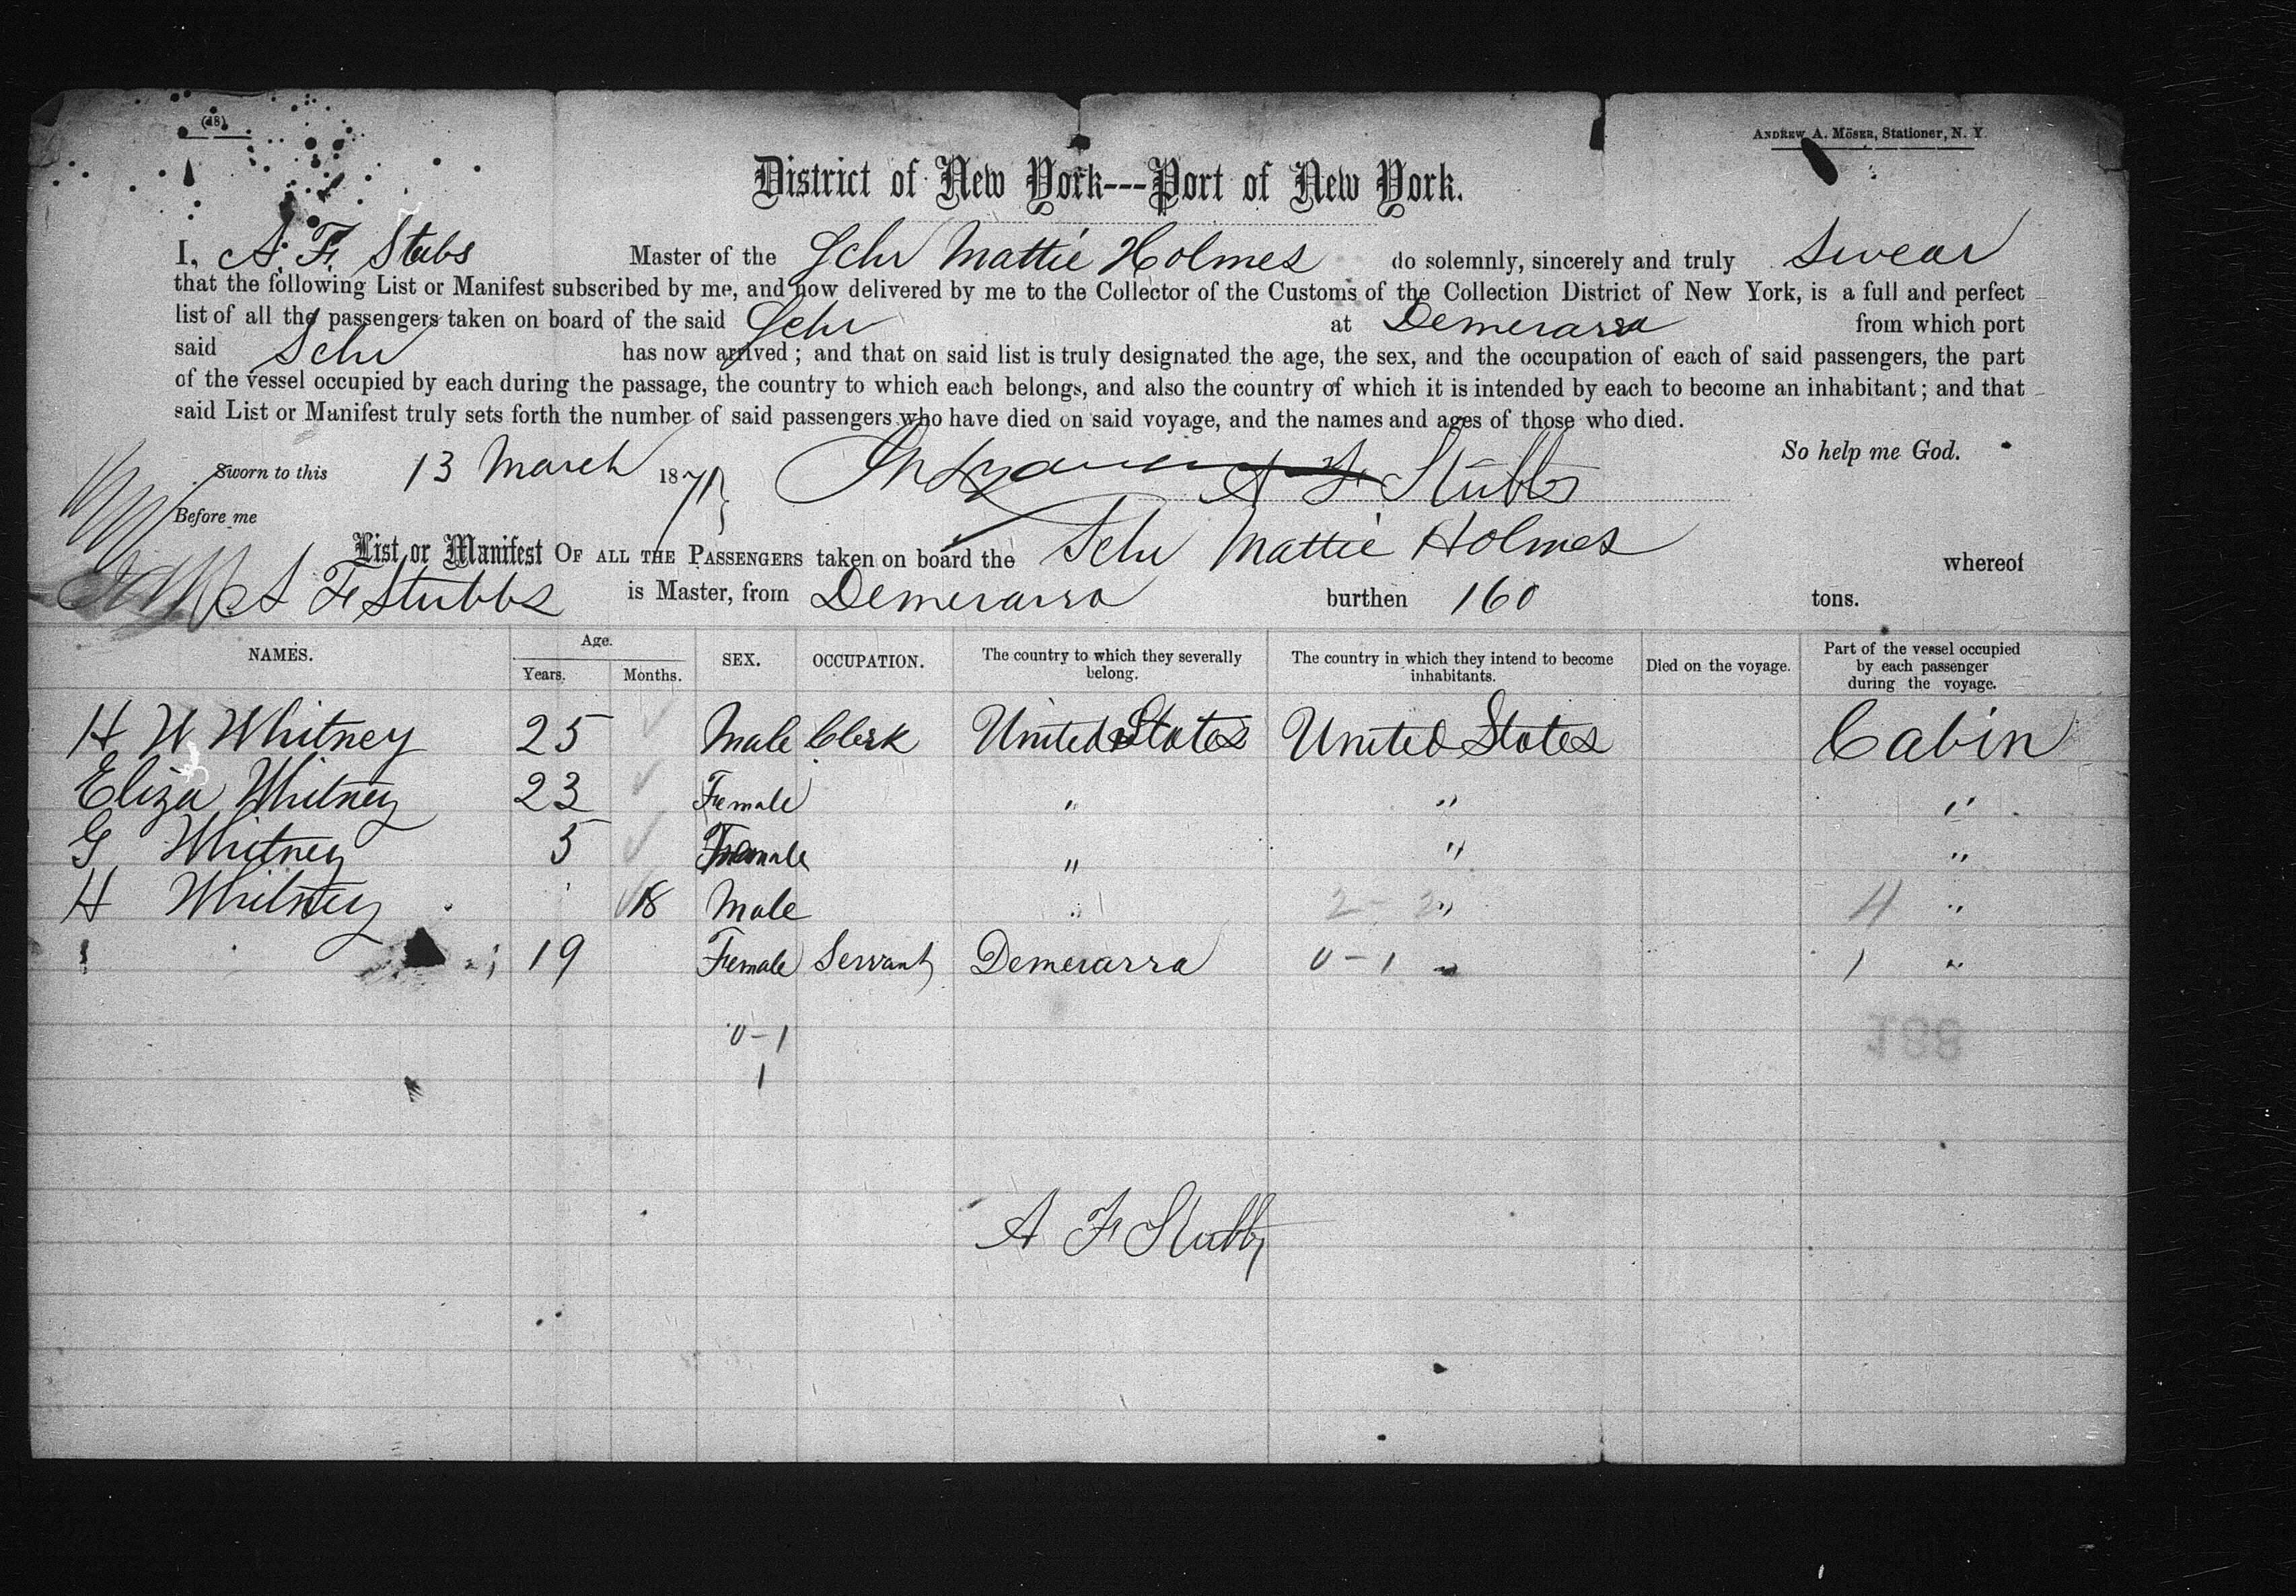 (48)
ANDREW A. MÖSER, Stationer, N. Y.
District of New York---Port of New York.
I, A. F. Stubs Master of the Schr Mattie Holmes do solemnly, sincerely and truly swear
that the following List or Manifest subscribed by me, and now delivered by me to the Collector of the Customs of the Collection District of New York, is a full and perfect
list of all the passengers taken on board of the said Schr at Demerarra from which port
said Schr has now arrived; and that on said list is truly designated the age, the sex, and the occupation of each of said passengers, the part
of the vessel occupied by each during the passage, the country to which each belongs, and also the country of which it is intended by each to become an inhabitant; and that
said List or Manifest truly sets forth the number of said passengers who have died on said voyage, and the names and ages of those who died.
So help me God.
Sworn to this 13 March 1871 A F Stubbs
Before me
List or Manifest OF ALL THE PASSENGERS taken on board the Schr Mattie Holmes whereof
A F Stubbs is Master, from Demerarra burthen 160 tons.
NAMES. Age. Years. Months. SEX. OCCUPATION. The country to which they severally belong. The country in which they intend to become inhabitants. Died on the voyage. Part of the vessel occupied by each passenger during the voyage.
H W Whitney 25 Male Clerk United States United States Cabin
Eliza Whitney 23 Female " " "
G Whitney 5 Female " " "
H Whitney 18 Male " 2 - 2 " 4 "
19 Female Servant Demerarra 0 - 1 " 1 "
0 - 1
1
188
A F Stubbs